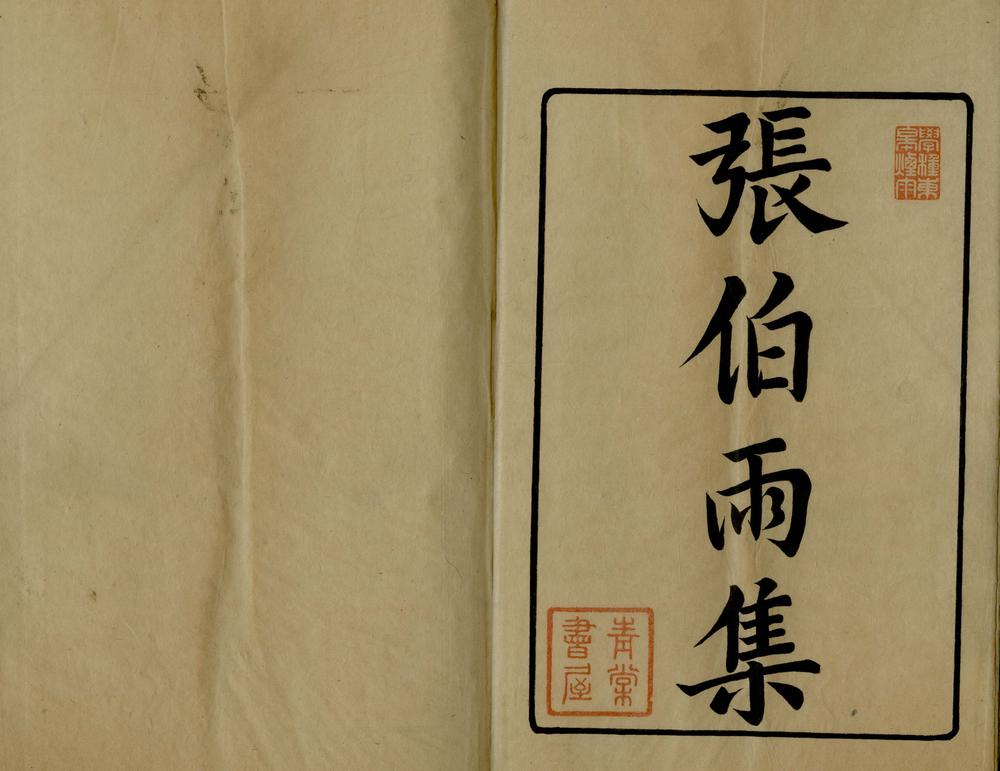 張伯雨集
青棠
書屋